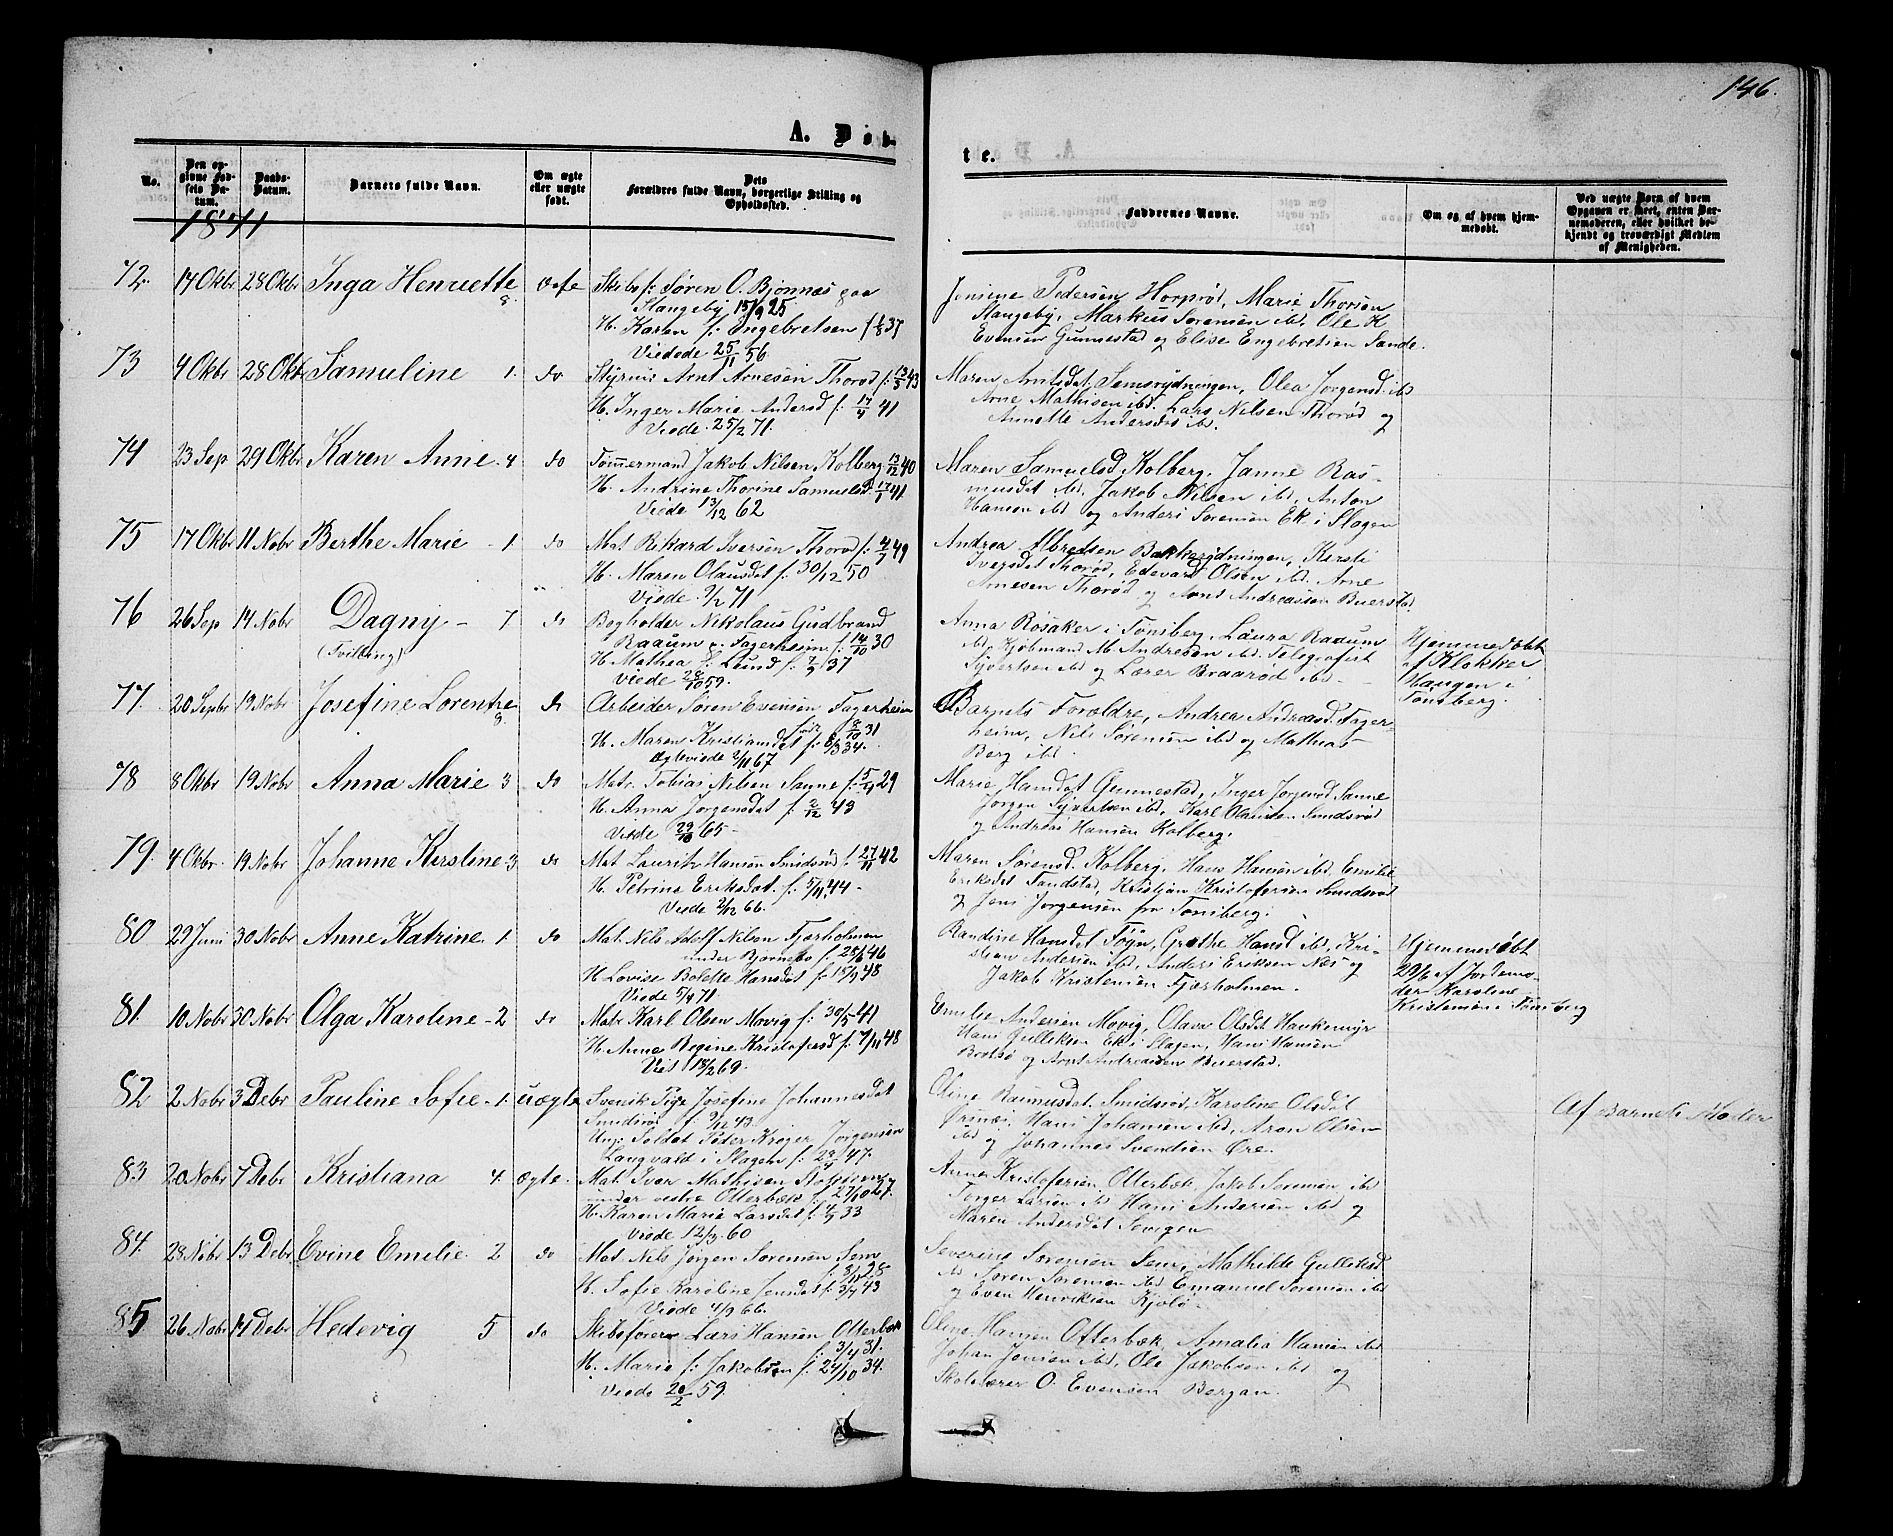 146.
A. Døb-
te.
No.
Den op-
givne Fød-
sels Da-
tum.
Daabs-
Datum.
Barnets fulde Navn.
Om ægte
eller uægte
født.
Dets
Forældres fulde Navn, borgerlige Stilling og
Opholdssted.
Faddernes Navne.
Om og af hvem hjem-
medøbt.
Ved uægte Børn af hvem
Opgaven er skeet, enten Bar-
nemoderen, eller hvilket be-
kjendt og troværdigt Medlem
af Menigheden.
1871
72. 17 Okbr 28 Okbr Inga Henriette 8. ægte
Skibsf: Søren O. Bjønnæs paa
Slangeby 15/9 25
H. Karen f: Engebretsen f 1/8 37
Viede 25/11 56.
Jensine Pedersen Horprød, Marie Thorsen
Slangeby, Markus Sørensen ibd. Ole H.
Evensen Gunnestad og Elise Engebretsen Sande.
73 9 Okbr 28 Okt Samuline 1. do
Styrm: Arnt Arnesen Thorød f: 13/5 43
H. Inger Marie Andersd f: 17/4 41
Viede 25/2 71.
Maren Arntsdat: Semsrydningen, Olea Jørgensd. ibd
Arne Mathisen ibd. Lars Nilsen Thorød og
Annette Andersdat ibd.
74 23 Sep 29 Okbr Karen Anne 4 do
Tømmermand Jakob Nilsen Kolberg 13/12 40
H. Andrine Thorine Samuelsd. 17/1 41
Viede 13/12 62
Maren Samuelsd. Kolberg, Janne Ras-
musdat ibd. Jakob Nilsen ibd, Anton
Hansen ibd og Anders Sørensen Ek i Slagen
75 17 Okbr 11 Nobr Berthe Marie - 1. do
Mat Rikard Iversen Thorød f: 4/7 49
H. Maren Olausdat f: 30/12 50
Viede 2/2 71
Andrea Abrelsen Bakkerydningen, Kersti
Iversdat Thorød, Edevard Olsen ibd. Arne
Arnesen Thorød og Arnt Andreassen Buerstad.
76 26 Sep 14 Nobr Dagny - 7 do
(Tvilling)
Bogholder Nikolaus Gudbrand
Raaum p. Fagerheim f: 14/10 30
H. Mathea f: Lund f: 2/9 37
Viede 28/10 59.
Anna Rosaker i Tønsberg, Laura Raaum
ibd. Kjøbmand M. Andresen ibd. Telegrafist
Syvertsen ibd og Lærer Braarød ibd -
Hjemmedøbt
af Klokker
Haugen i
Tønsberg.
77. 20 Sepbr 19 Nobr Josefine Lorentze 8. do
Arbeider Søren Evensen Fagerheim
født 8/10 31
H. Maren Kristiansdat f: 8/3 34.
Ægteviede 2/11 67
Barnets Forældre, Andrea Andreasd. Fager-
heim, Nils Sørensen ibd og Mathias
Berg ibd.
78 8 Okbr 19 Nobr Anna Marie 3 do
Matr. Tobias Nilsen Sanne f: 5/4 29
H. Anna Jørgensdat f. 2/12 43
Viede 29/10 65 -
Marie Hansdat Gunnestad, Inger Jørgensd Sanne
Jørgen Syvertsen ibd, Karl Olausen Smidsrød
og Andreas Hansen Kolberg.
79. 4 Okbr. 19 Nobr Johanne Kerstine 3 do
Mat Lauritz Hansen Smidsrød f. 27/11 42
H. Petrine Eriksdat. f: 5/11 44 -
Viede 2/12 66.
Maren Sørensd. Kolberg, Hans Hansen ibd. Emilie
Eriksdat Tandstad, Kristian Kristofersen Smidsrød
og Jens Jørgensen fra Tønsberg.
80 29 Juni 30 Nobr Anne Katrine. 1. do
Mat Nils Adolf Nilsen Fjærholmen
under Bjørnebo f. 25/6 46
H. Lovise Bolette Hansdat f: 15/9 48
Viede 5/9 71.
Randine Hansdat Føyn, Grethe Hansd ibd, Kri-
stian Andersen ibd, Anders Eriksen Næs og
Jakob Kristensen Fjærholmen.
Hjemmedøbt
29/6 af Jordemo-
der Karoline
Kristensen i Tønsberg
81. 10 Nobr 30 Nobr Olga Karoline - 2 do
Matr Karl Olsen Movig f: 30/5 41
H. Anne Regine Kristofersd f. 7/11 48
Viet 18/2 69.
Emelie Andersen Movig, Olava Olsdat Haukemyr
Hans Gulliksen Ek i Slagen, Hans Hansen
Brotsø og Arnt Andreassen Buerstad.
82 2 Nobr 3 Debr Pauline Sofie - 1. uægte
Svensk Pige Josefine Johannesdat
Smidsrød f. 9/12 43.
Ung: Soldat Peter Krøger Jørgensen
Langvald i Slagen f: 29/4 47.
Oline Rasmusdat Smidsrød, Karoline Olsdat
Ørsnæs, Hans Johansen ibd, Aron Olsen
ibd og Johannes Svendsen Øre.
Af Barnets Moder
83 20 Nobr 7 Debr Kristiana 4. ægte.
Mat Ivar Mathisen
under vestre Otterbæk f. 27/10 27.
H. Karen Marie Larsdat f. 4/9 33
Viede 12/3 60
Anne Kristofersen Otterbæk, Jakob Sørensen ibd
Torger Larsen ibd Hans Andersen ibd og
Maren Andersdat Sevigen
84. 28 Nobr 13 Debr Evine Emelie. 2 do
Mat Nils Jørgen Sørensen Sem
f: 8/11 28
H. Sofie Karoline Jensdat f. 3/7 43
Viede 4/9 66.
Severine Sørensen Sem, Mathilde Gulliksd
ibd Søren Sørensen ibd Emanuel Sørensen ibd
og Even Henriksen Kjølø -
85 26 Nobr 14 Debr Hedevig 5 do
Skibsfører Lars Hansen Otterbæk
f: 3/4 31.
H. Marie f: Jakobsen f: 24/10 34.
Viede 20/2 59.
Oline Hansen Otterbæk, Amalia Hansen ibd
Johan Jensen ibd, Ole Jakobsen ibd og
Skolelærer O. Evensen Bergan.